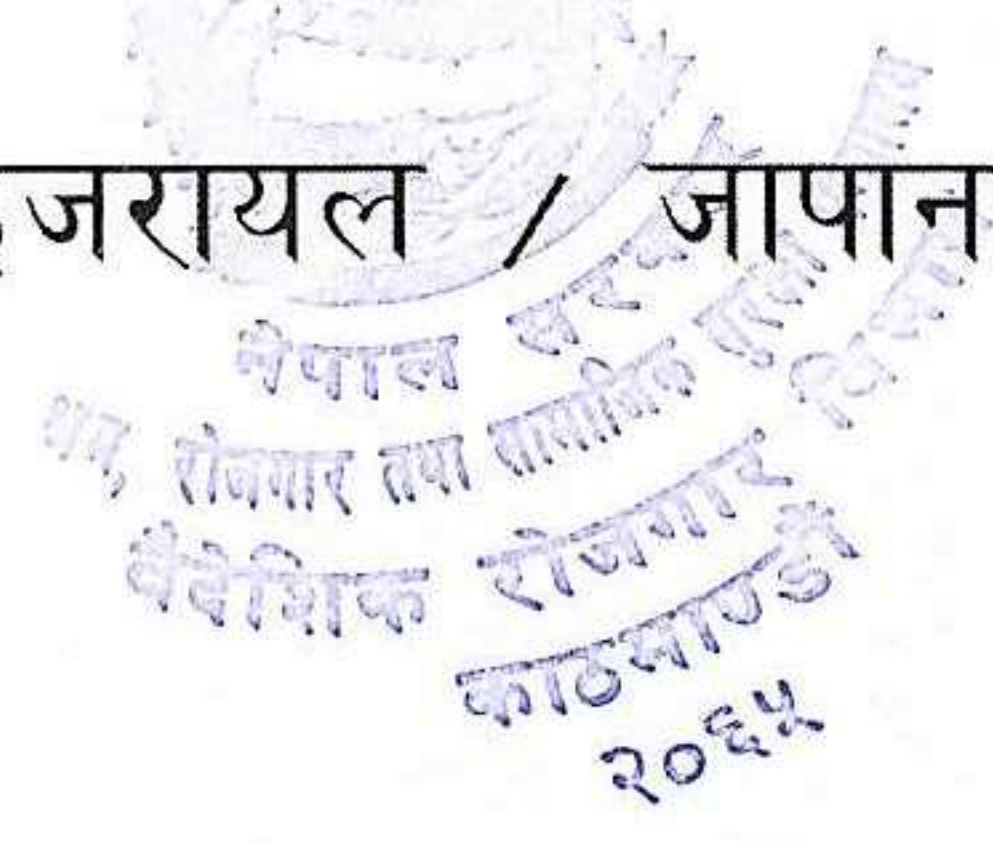 इजरायल / जापान
नेपाल सरकार
श्रम, रोजगार तथा सामाजिक सुरक्षा
वैदेशिक रोजगार
काठमाण्डौ
२०६५